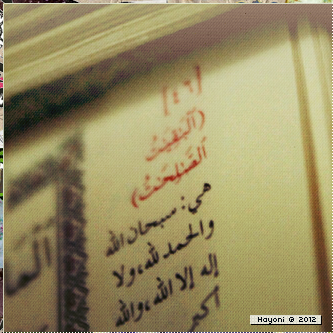 [٤٦]
(ٱلْبَٰقِيَٰتُ
ٱلصَّٰلِحَٰتُ)
هي: سبحان الله
والحمد لله، ولا
إله إلا الله، والله
أكبر
Hayoni © 2012